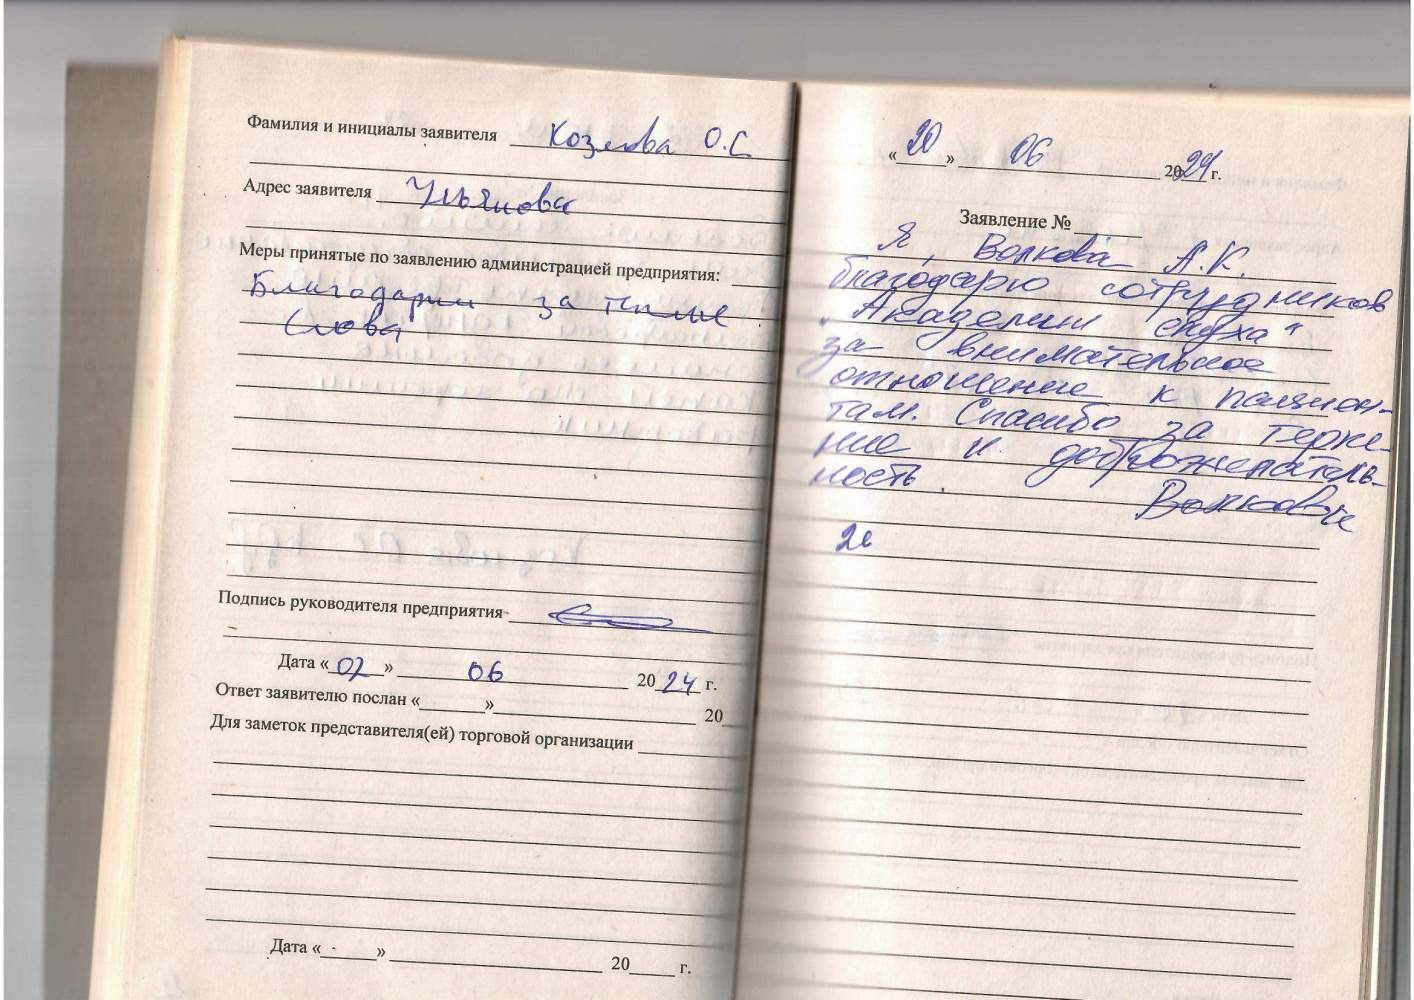 Фамилия и инициалы заявителя Козлова О.С.
Адрес заявителя Ульянова
Меры принятые по заявлению администрацией предприятия:
Благодарим за теплые
слова
Подпись руководителя предприятия
Дата «02» 06 2024 г.
Ответ заявителю послан «      » 20
Для заметок представителя(ей) торговой организации
Дата «      » 20     г.
«20» 06 2024 г.
Заявление №
Я, Волкова А.К.
благодарю сотрудников
"Академии слуха"
за внимательное
отношение к пациен-
там. Спасибо за терпе-
ние и доброжелатель-
ность.
Волкова